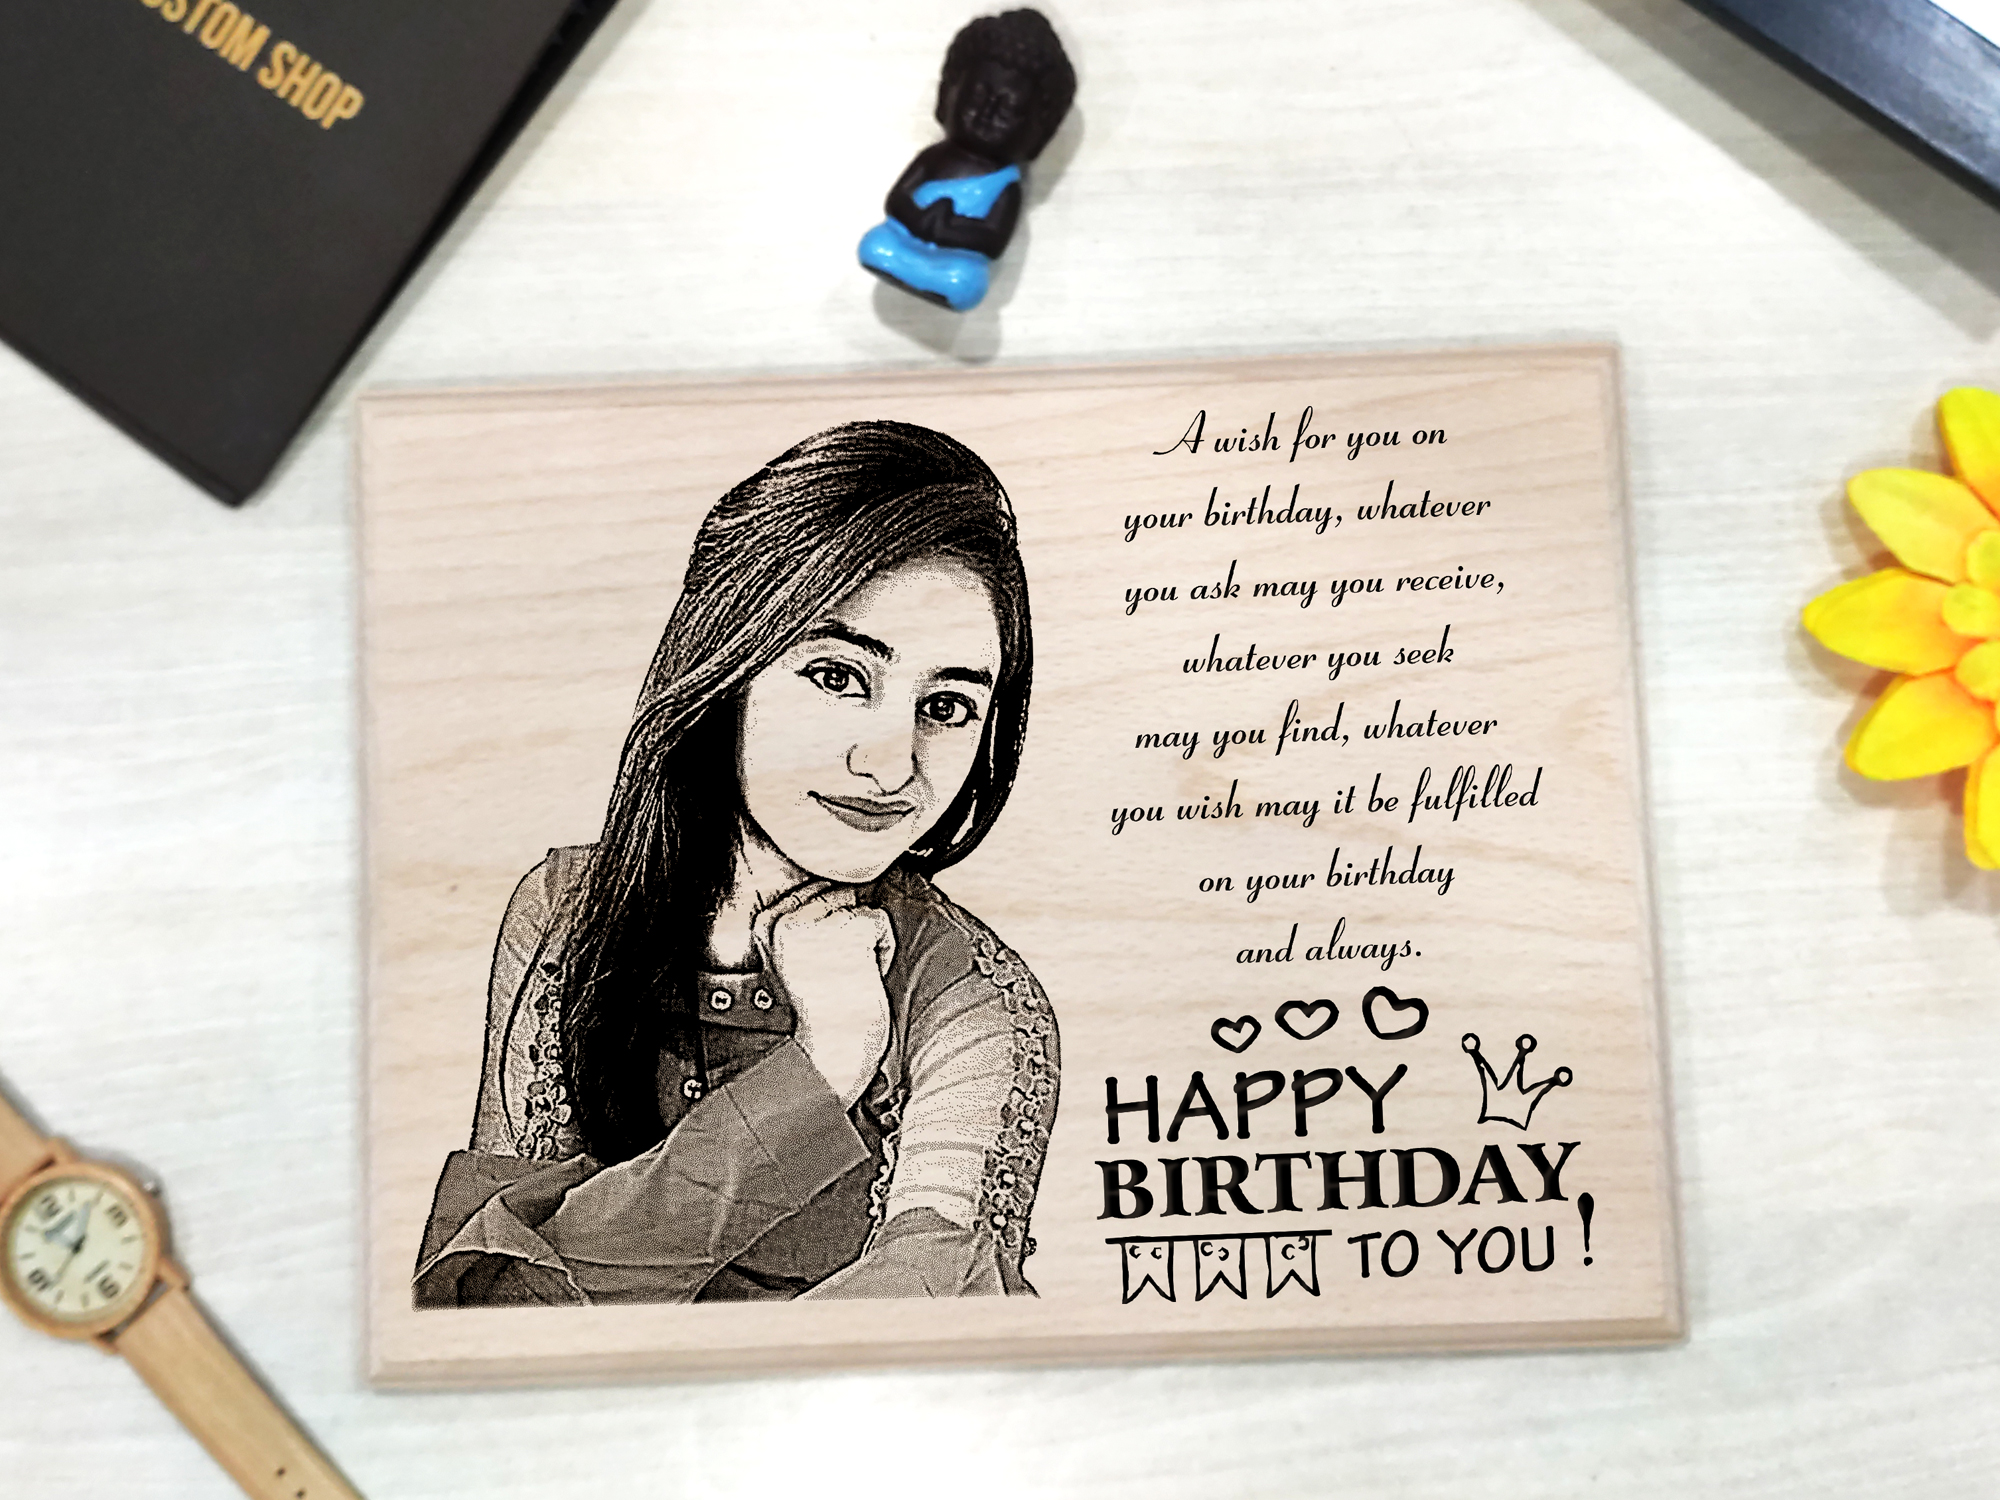 CUSTOM SHOP
A wish for you on
your birthday, whatever
you ask may you receive,
whatever you seek
may you find, whatever
you wish may it be fulfilled
on your birthday
and always.
HAPPY
BIRTHDAY,
TO YOU!